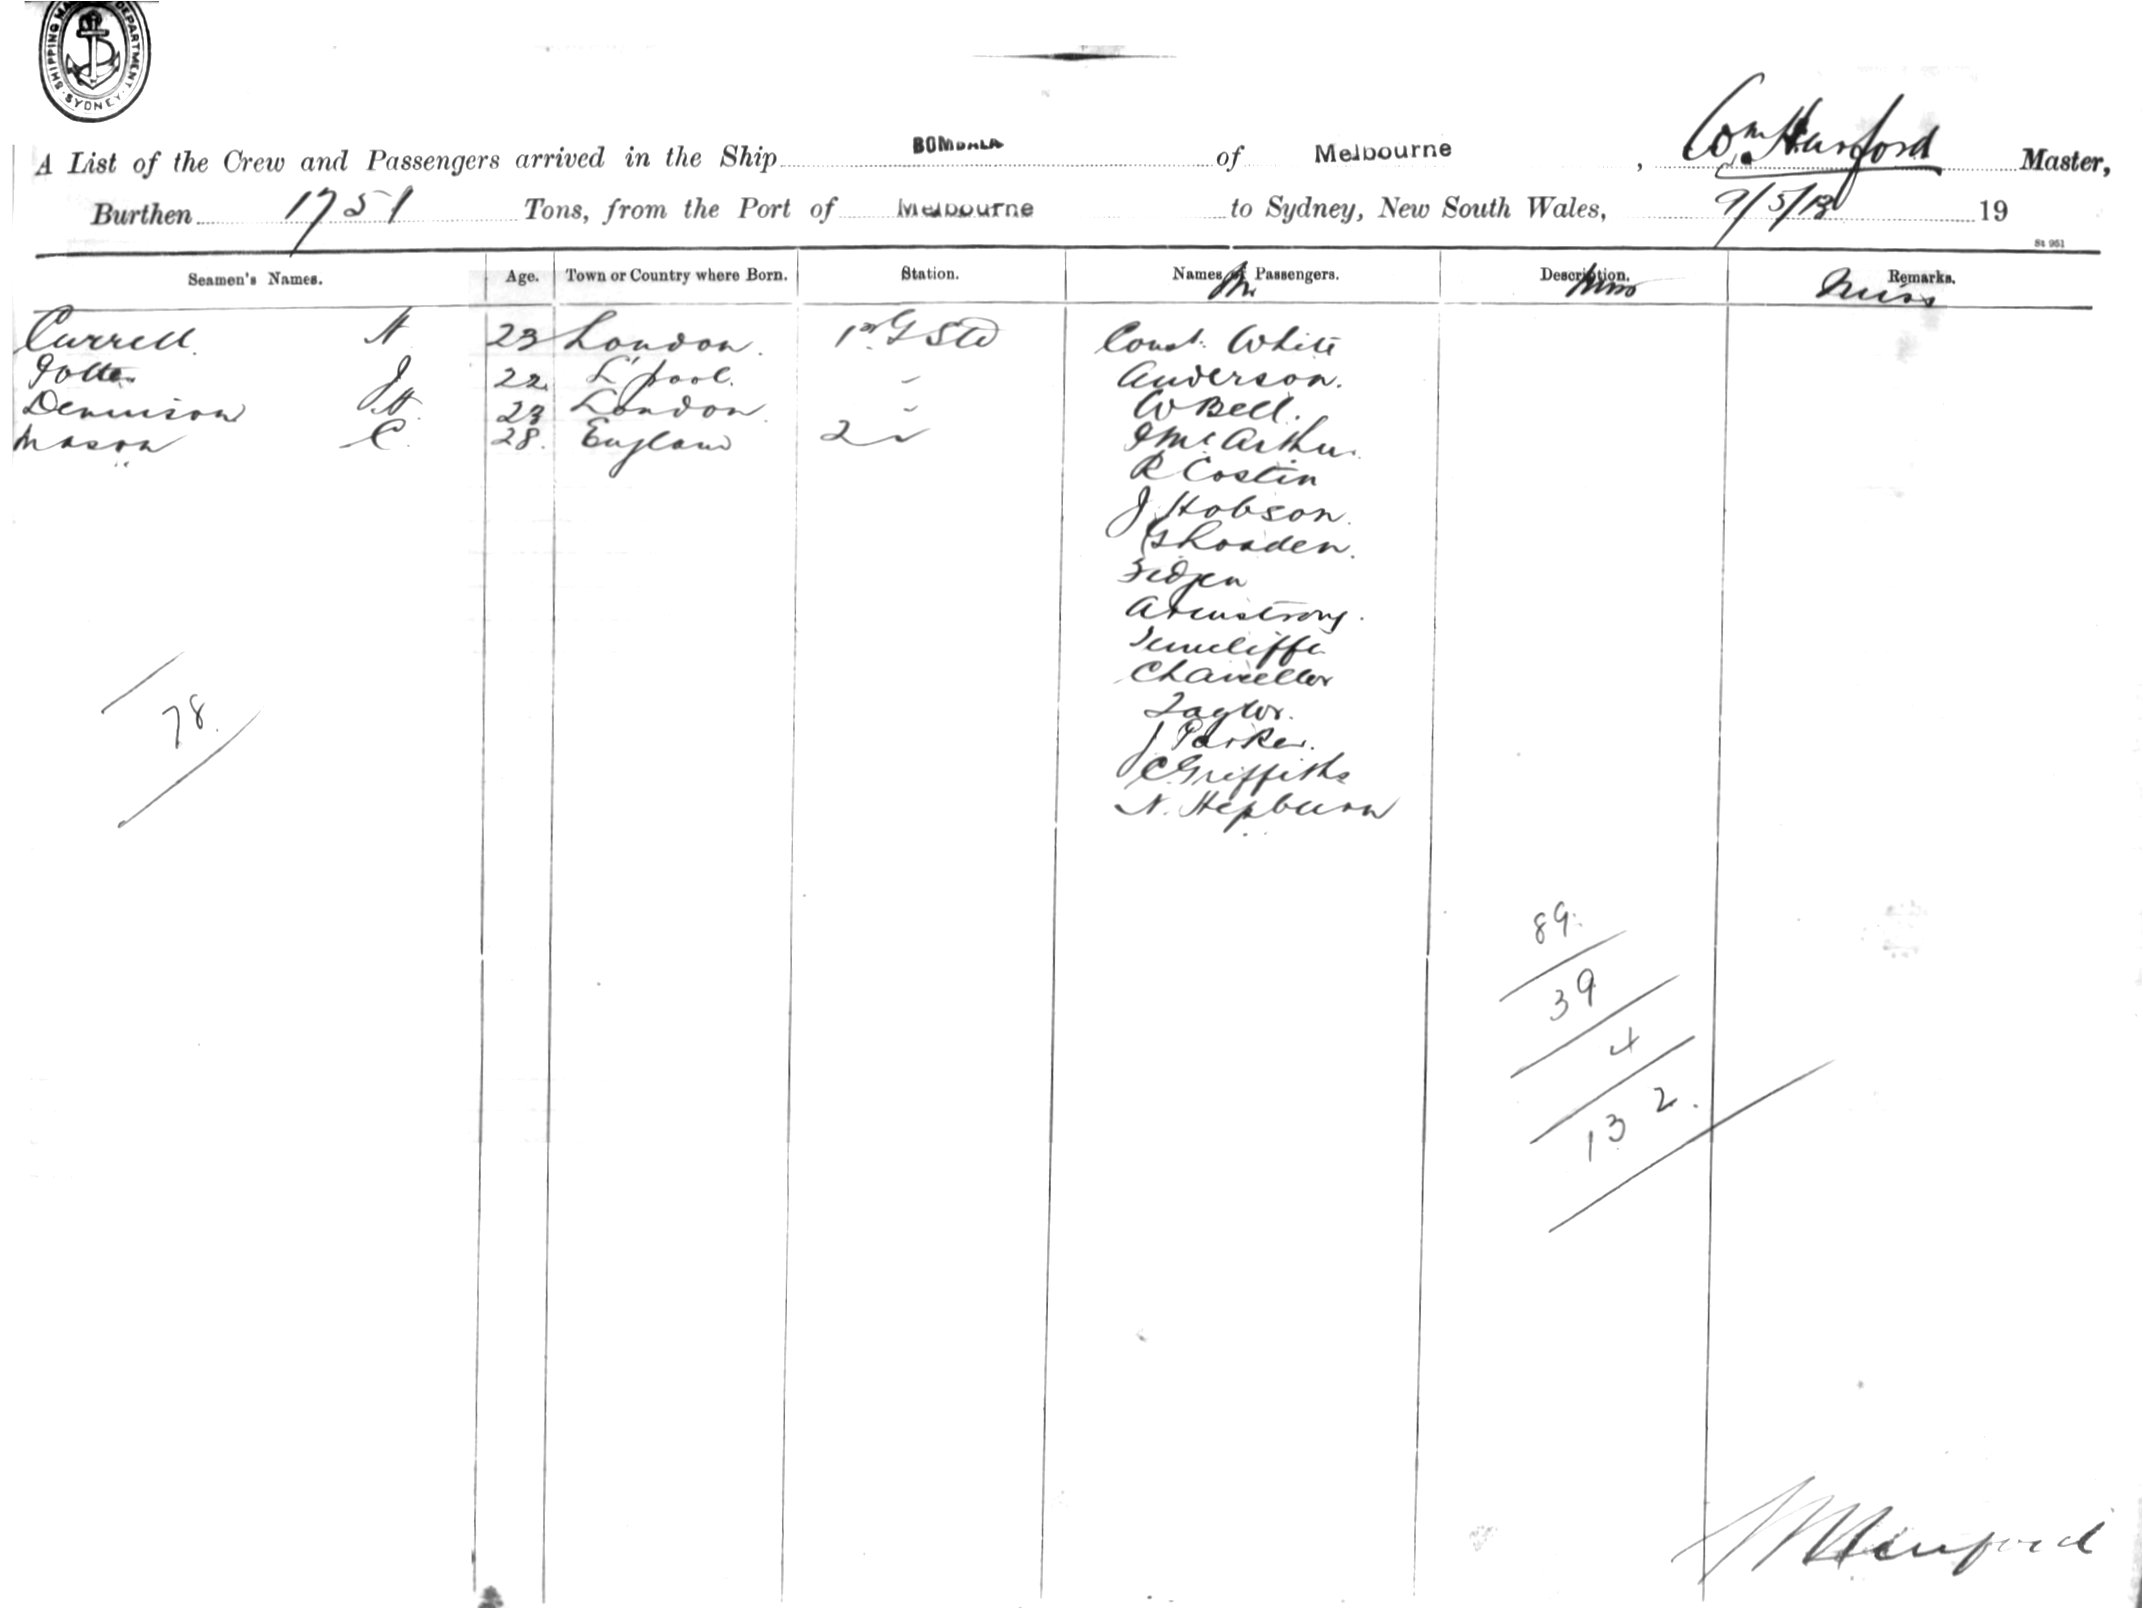 SHIPPING MA DEPARTMENT SYDNEY
A List of the Crew and Passengers arrived in the Ship BOMBALA of Melbourne , Wm. Hurford Master,
Burthen 1751 Tons, from the Port of Melbourne to Sydney, New South Wales, 9/5/13 19
St 951
Seamen's Names. Age. Town or Country where Born. Station. Names of Passengers. Description. Remarks.
Mr Mrs Miss
Currell A 23 London. 1st G Std Const. White
J 22 L'pool. " Anderson.
Dennison A. 23 London " W Bell.
Mason C. 28. England 2 " J McArthur.
R Costin
J Hobson.
G Loaden.
Armstrong.
Chancellor
Taylor.
J Parker.
C Griffiths
N. Hepburn
78.
89.
39
4
132.